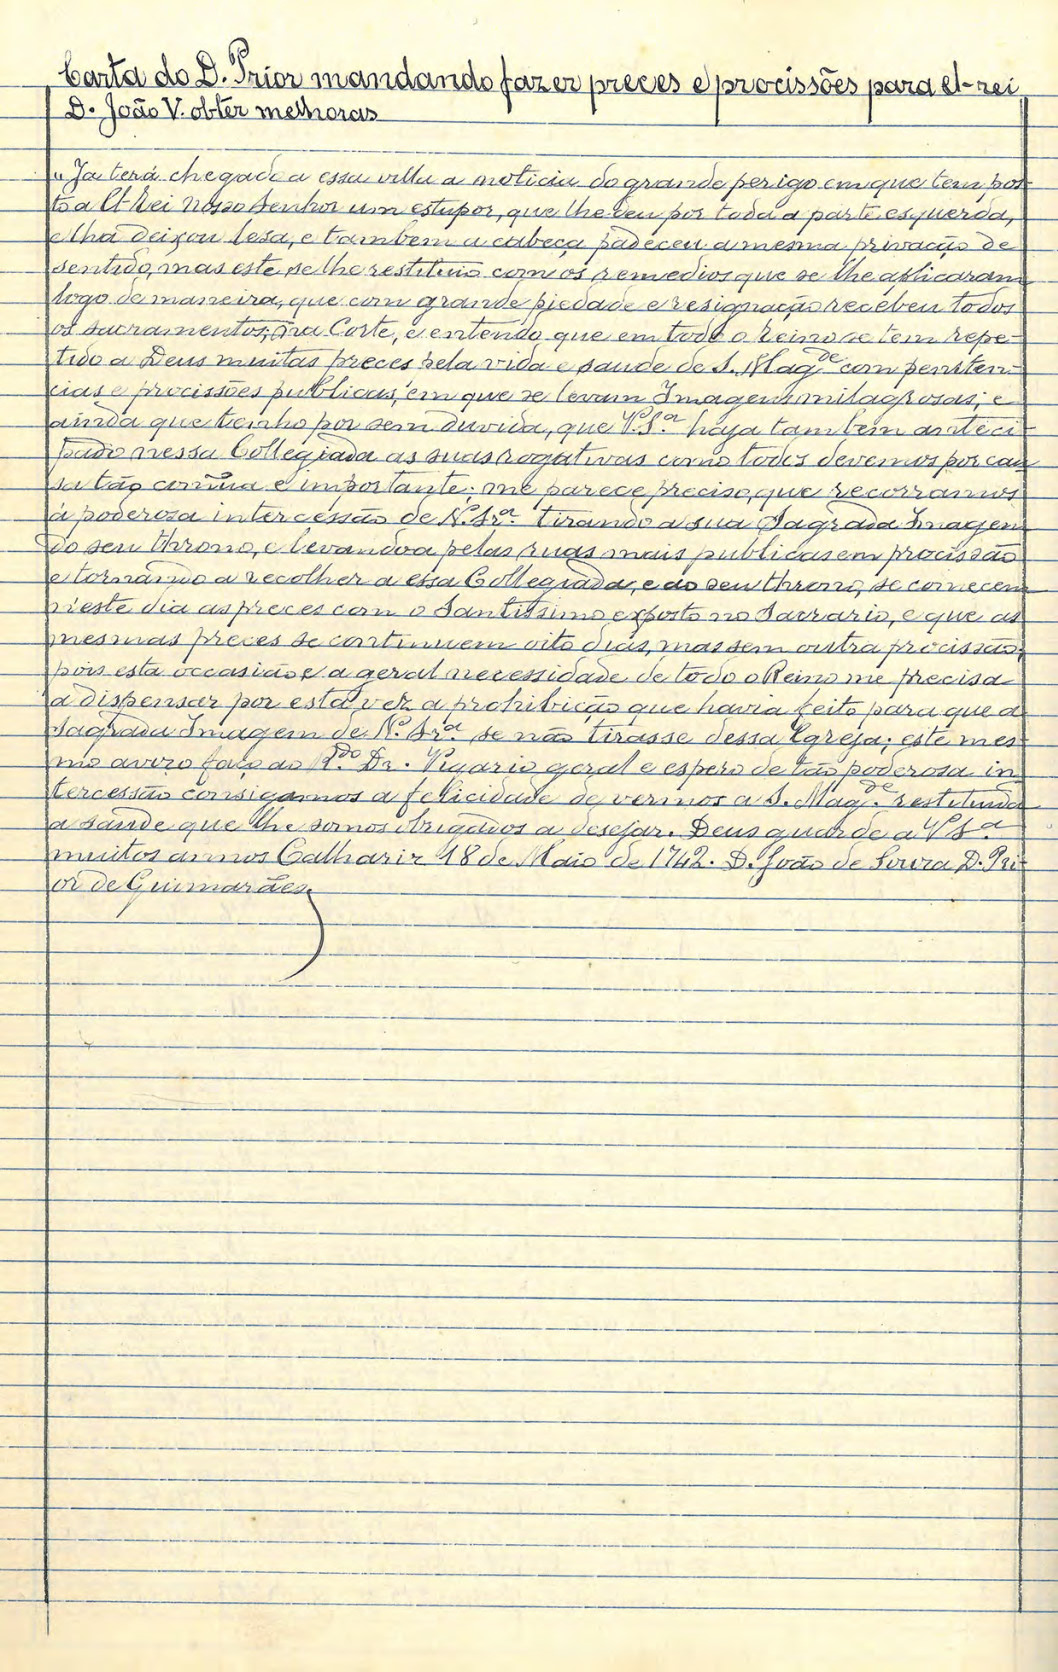 Carta do D. Prior mandando fazer preces e procissões para el-rei
D. João V. obter melhoras
"Ja terá chegado a essa villa a noticia do grande perigo em que tem pos-
to a El-Rei Nosso Senhor um estupor, que lhe deu por toda a parte esquerda,
e lha deixou lesa, e tambem a cabeça padeceu a mesma privação de
sentido, mas este se lhe restituio com os remedios que se lhe applicaram
logo de maneira, que com grande piedade e resignação recebeu todos
os sacramentos; na Corte, e entendo que em todo o Reino se tem repe-
tido a Deus muitas preces pela vida e saude de S. Mag.de com peniten-
cias e procissões publicas, em que se levam Imagens milagrosas; e
ainda que tenho por sem duvida, que V. S.a haja tambem anteci-
pado nessa Collegiada as suas rogativas como todos devemos por cau-
sa tão comũa e importante; me parece preciso, que recorramos
á poderosa intercessão de N. Sr.a tirando a sua Sagrada Imagem
do seu throno, e levandoa pelas ruas mais publicas em procissão
e tornando a recolher a essa Collegiada, e ao seu throno, se comecem
n'este dia as preces com o Santissimo exposto no Sacrario, e que as
mesmas preces se continuem oito dias, mas sem outra procissão,
pois esta occasião e a geral necessidade de todo o Reino me precisa
a dispensar por esta vez a prohibição que havia feito para que a
sagrada Imagem de N. Sr.a se não tirasse dessa Egreja; este mes-
mo aviso faço ao R.do Dr. Vigario geral e espero de tão poderosa in-
tercessão consigamos a felicidade de vermos a S. Mag.de restituida
a saude que lhe somos obrigados a desejar. Deus guarde a V. S.a
muitos annos Calhariz 18 de Maio de 1742. D. João de Souza D. Pri-
or de Guimarães.